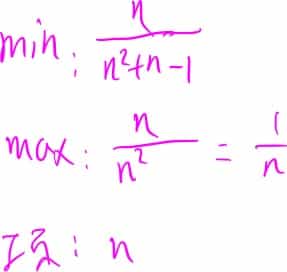 min: \frac{n}{n^2+n-1}
max: \frac{n}{n^2} = \frac{1}{n}
: n